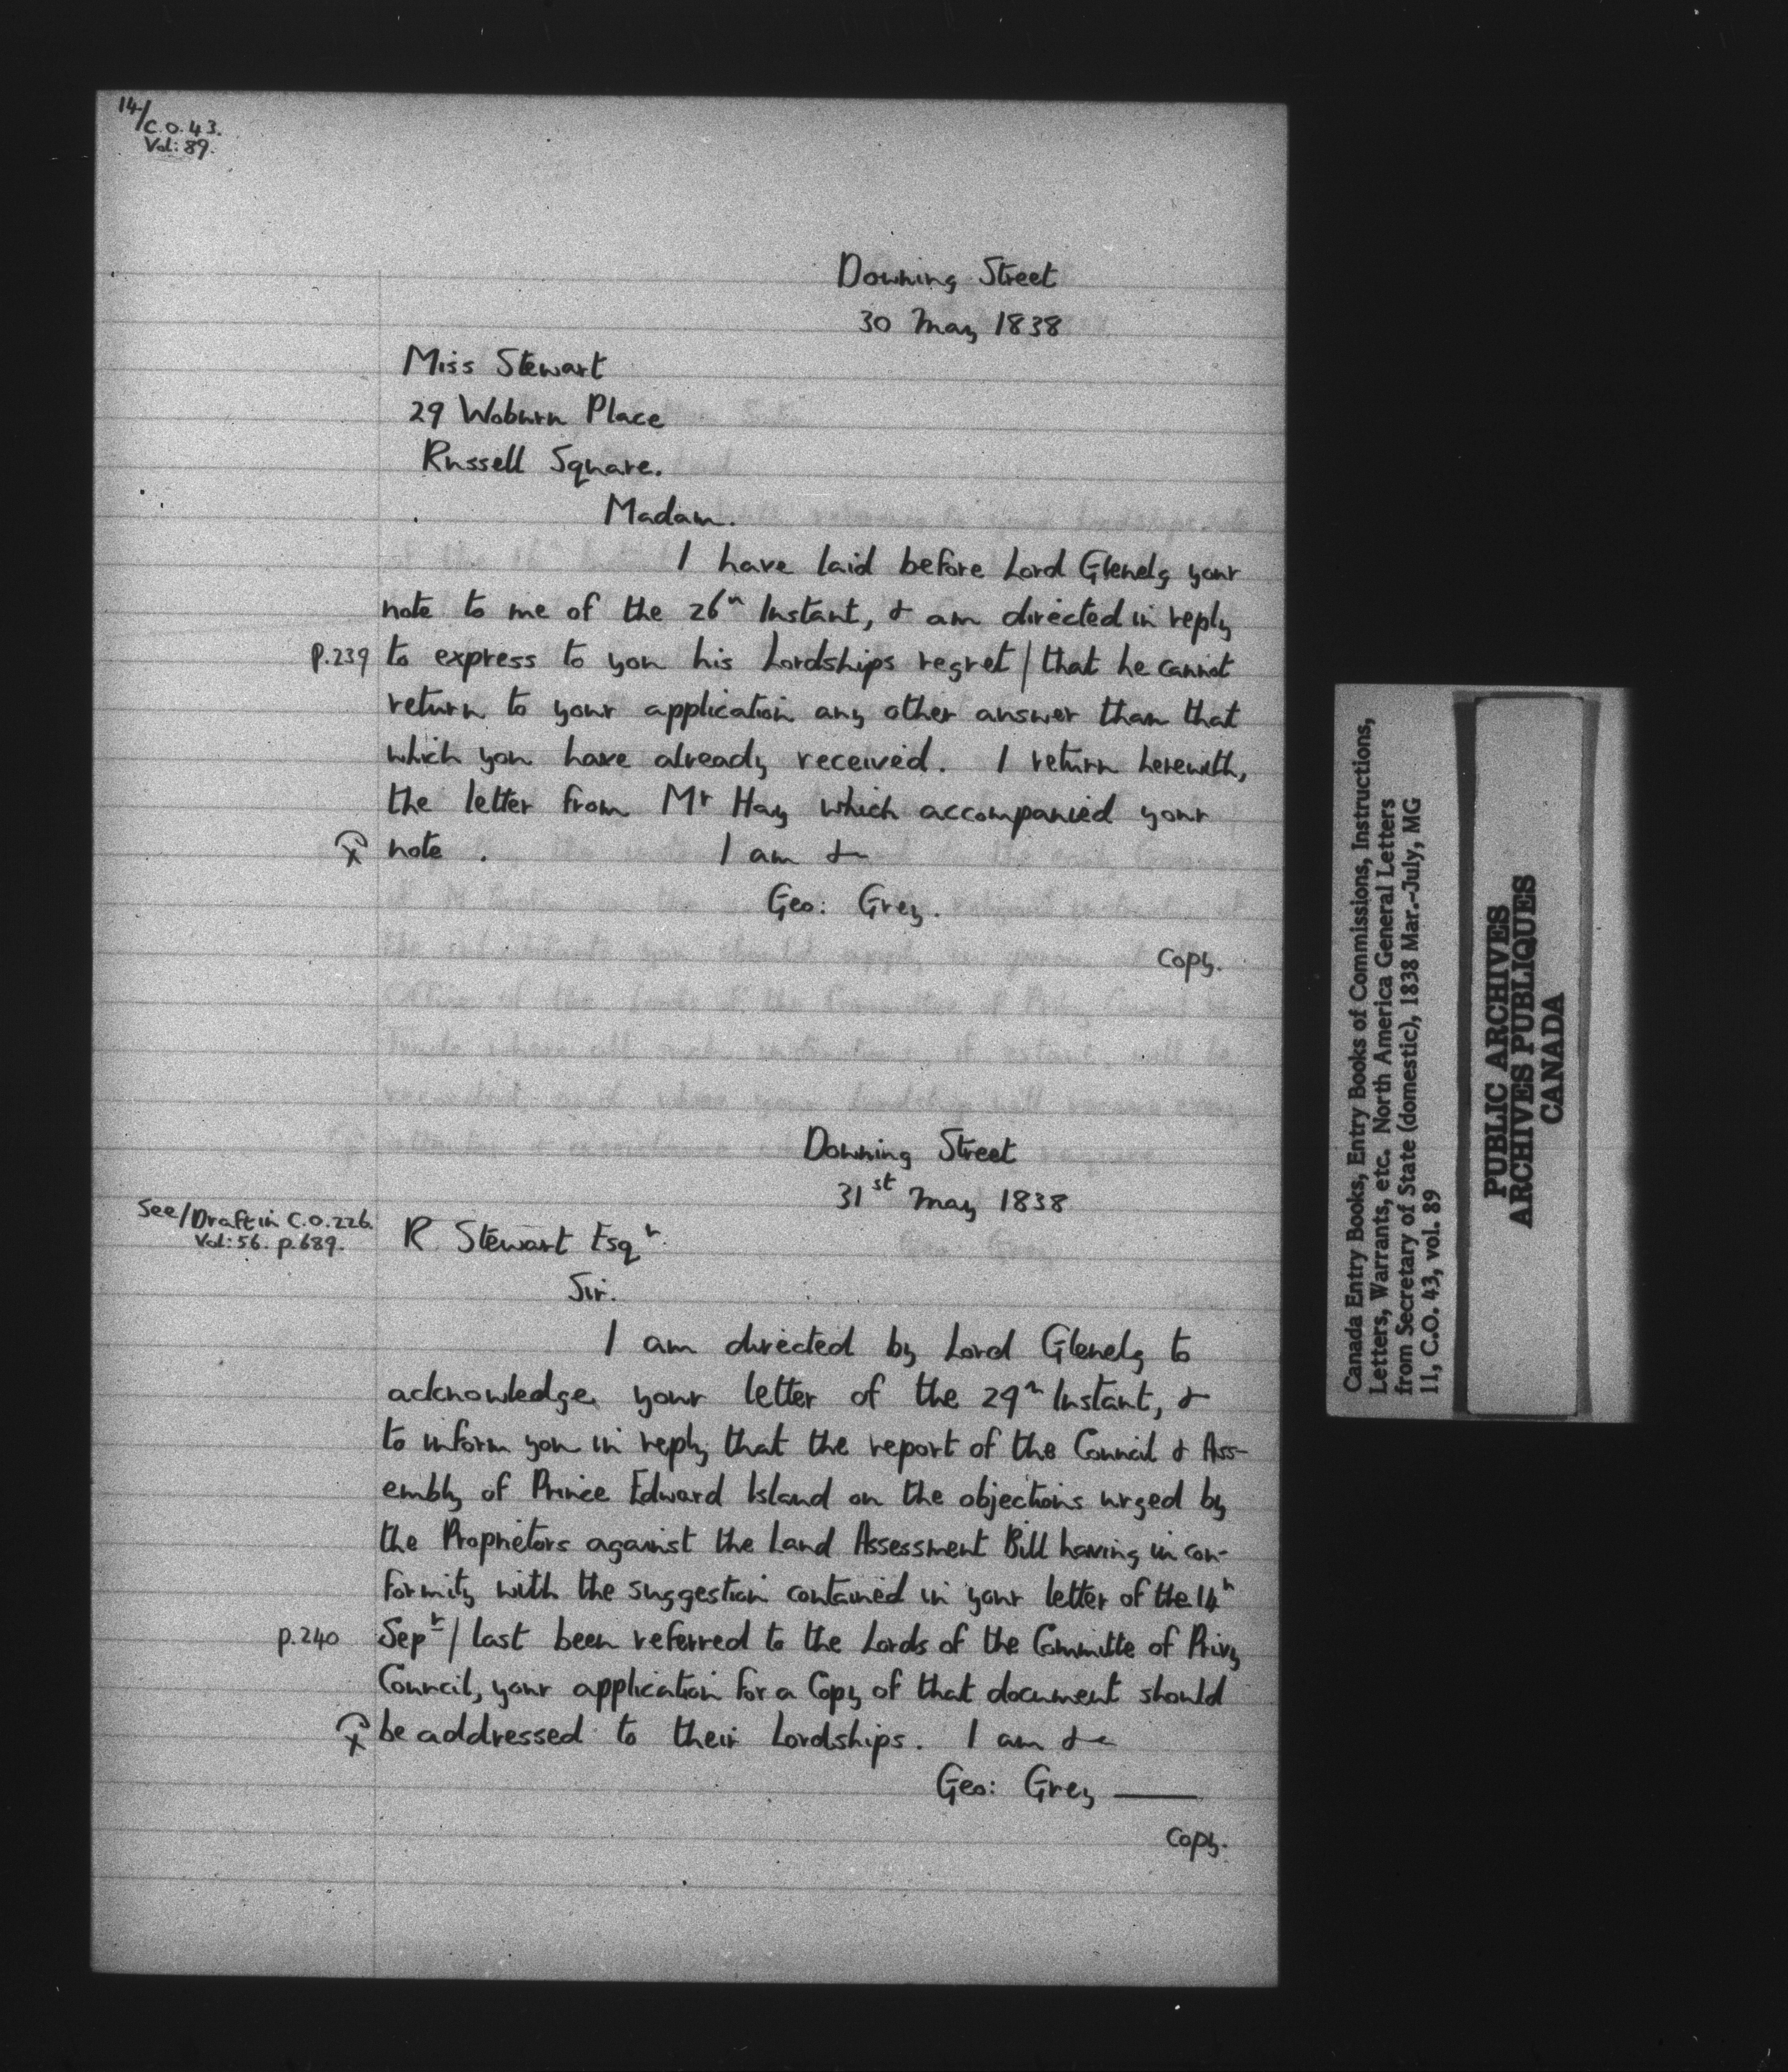 14/
C.O. 43.
Vol: 89.
Downing Street
30 May 1838
Miss Stewart
29 Woburn Place
Russell Square.
Madam.
I have laid before Lord Glenelg your
note to me of the 26ᵗʰ Instant, & am directed in reply
p.239 to express to you his Lordships regret / that he cannot
return to your application any other answer than that
which you have already received. I return herewith,
the letter from Mr Hay which accompanied your
note. I am &c
Geo: Grey.
Copy.
Downing Street
31st May 1838
See/Draft in C.O.226.
Vol: 56. p.689.
R. Stewart Esqr.
Sir.
I am directed by Lord Glenelg to
acknowledge your letter of the 29ᵗʰ Instant, &
to inform you in reply that the report of the Council & Ass-
embly of Prince Edward Island on the objections urged by
the Proprietors against the Land Assessment Bill having in con-
formity with the suggestion contained in your letter of the 14ᵗʰ
p.240 Sepr / last been referred to the Lords of the Committe of Privy
Council, your application for a Copy of that document should
be addressed to their Lordships. I am &c
Geo: Grey ——
Copy.
Canada Entry Books, Entry Books of Commissions, Instructions,
Letters, Warrants, etc. North America General Letters
from Secretary of State (domestic), 1838 Mar.-July, MG
11, C.O. 43, vol. 89
PUBLIC ARCHIVES
ARCHIVES PUBLIQUES
CANADA